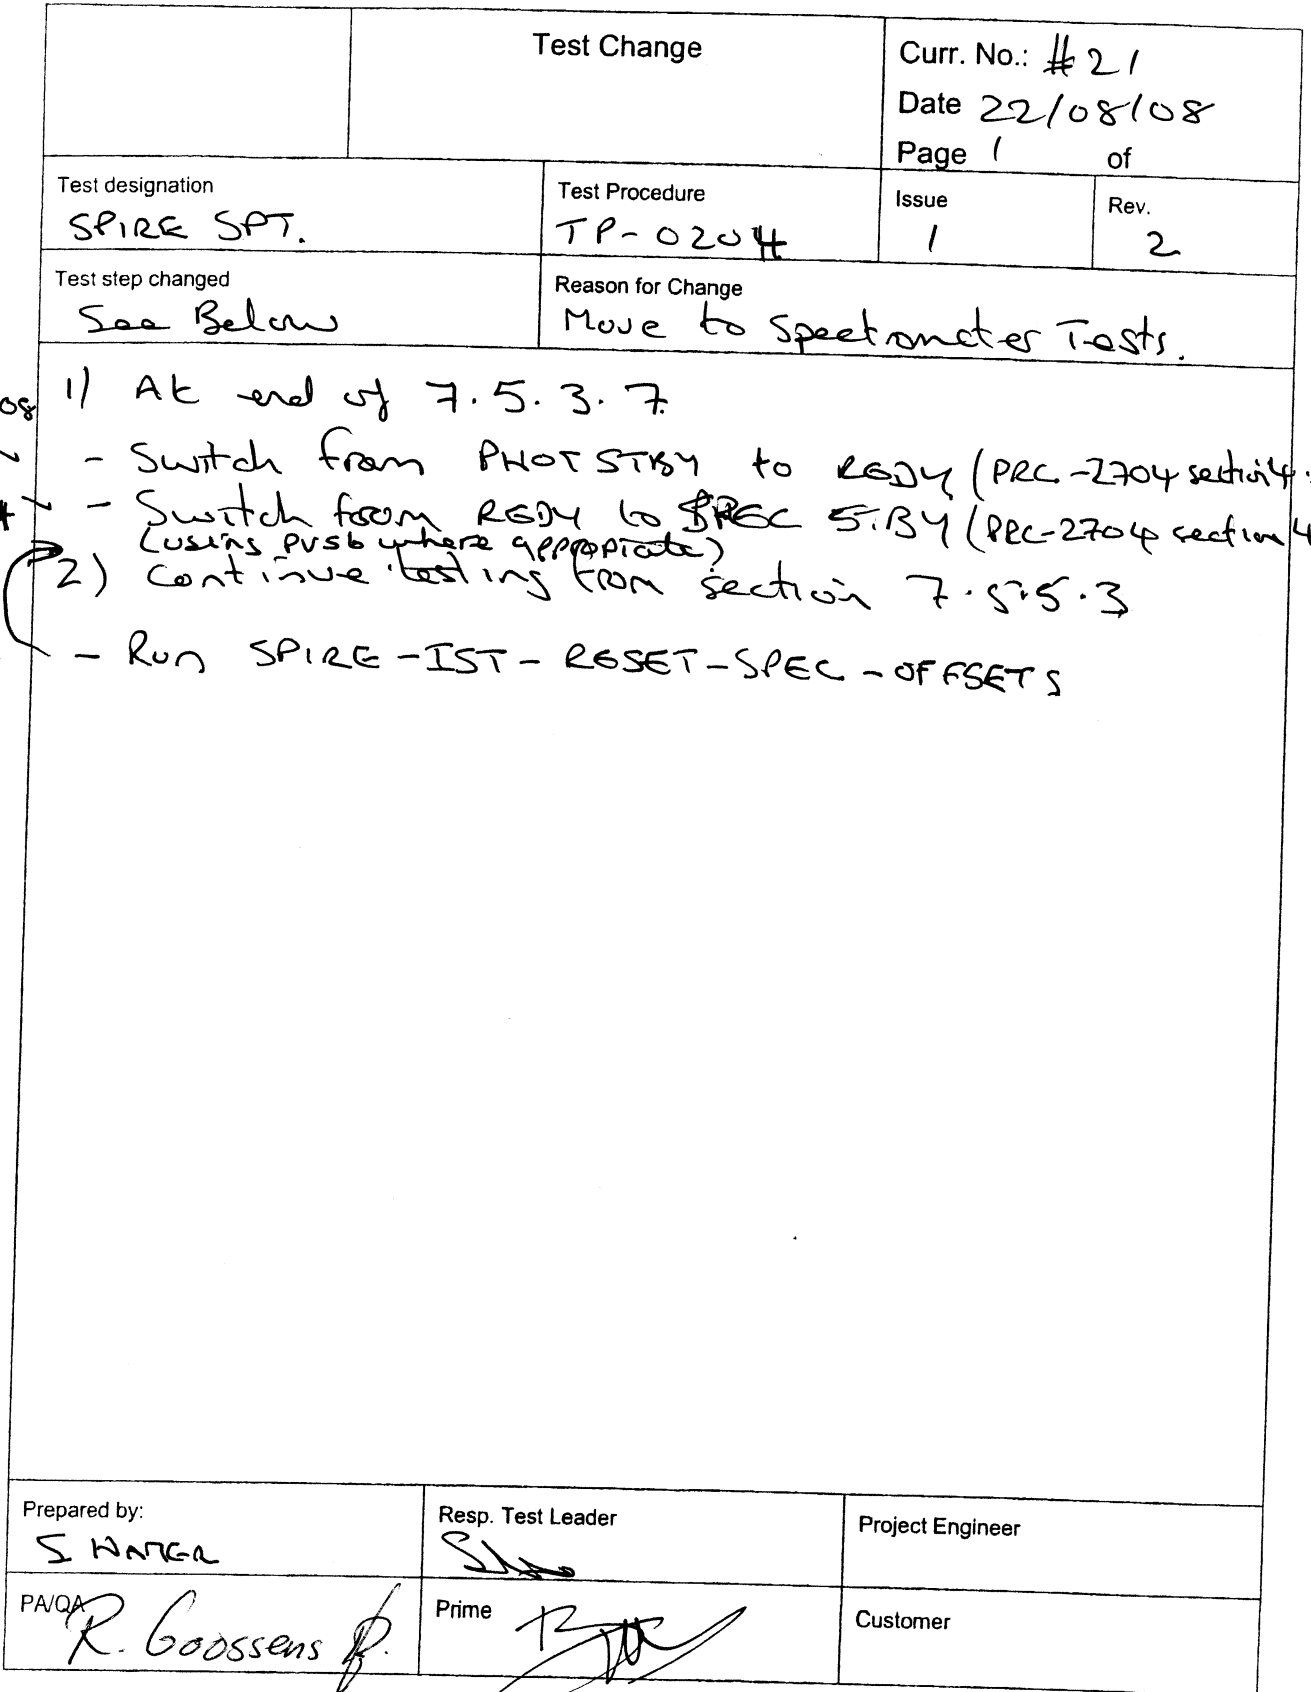 Test Change
Curr. No.: #21
Date 22/08/08
Page 1 of
Test designation
SPIRE SPT.
Test Procedure
TP-0204
Issue
1
Rev.
2
Test step changed
See Below
Reason for Change
Move to Spectrometer Tests.
08
1) At end of 7.5.3.7
- Switch from PHOT STBY to REDY (PRC-2704 section 4.
- Switch from REDY to SPEC STBY (PRC-2704 section 4
(using pvsb where appropiate)
2) Continue testing from section 7.5.5.3
- Run SPIRE-IST-RESET-SPEC-OFFSETS
Prepared by:
Resp. Test Leader
Project Engineer
PA/QA
R. Goossens
Prime
Customer